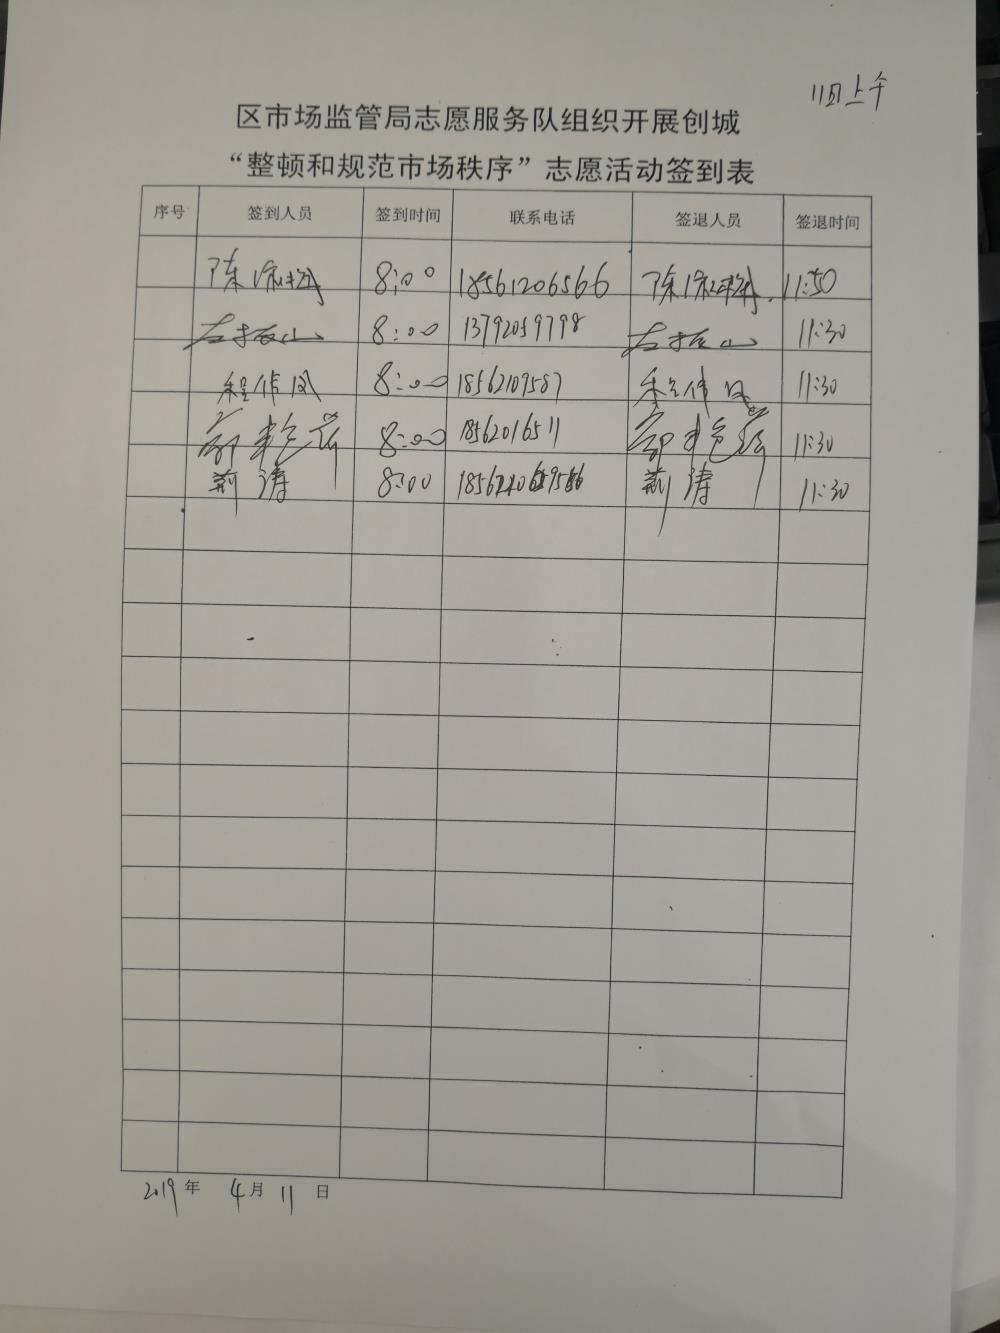 11日上午
区市场监管局志愿服务队组织开展创城
“整顿和规范市场秩序”志愿活动签到表
序号 签到人员 签到时间 联系电话 签退人员 签退时间
陈 8:00 18561206566 陈 11:50
左振山 8:00 13792059798 左振山 11:30
程伟凤 8:00 18562109587 程伟凤 11:30
8:00 18562016511 11:30
荆涛 8:00 荆涛 11:30
2019年 4月 11 日